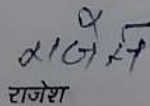 राजेश
राजेश